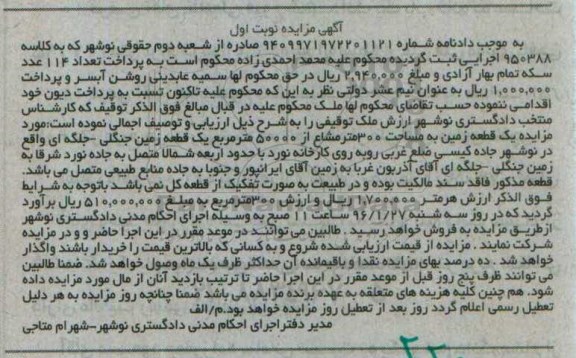 آگهی مزایده نوبت اول
به موجب دادنامه شماره ۹۴۰۹۹۷۱۹۷۲۲۰۱۱۲۱ صادره از شعبه دوم حقوقی نوشهر که به کلاسه
۹۵۰۳۸۸ اجرایی ثبت گردیده محکوم علیه محمد احمدی زاده محکوم است به پرداخت تعداد ۱۱۴ عدد
سکه تمام بهار آزادی و مبلغ ۲,۹۴۰,۰۰۰ ریال در حق محکوم لها سمیه عابدینی روشن آبسر و پرداخت
۱,۰۰۰,۰۰۰ ریال به عنوان نیم عشر دولتی نظر به این که محکوم علیه تاکنون نسبت به پرداخت دیون خود
اقدامی ننموده حسب تقاضای محکوم لها ملک محکوم علیه در قبال مبالغ فوق الذکر توقیف که کارشناس
منتخب دادگستری نوشهر ارزش ملک توقیفی را به شرح ذیل ارزیابی و توصیف اجمالی نموده است:مورد
مزایده یک قطعه زمین به مساحت ۳۰۰مترمشاع از ۵۰۰۰۰ مترمربع یک قطعه زمین جنگلی -جلگه ای واقع
در نوشهر جاده کیسی ضلع غربی روبه روی کارخانه نورد با حدود اربعه شمالا متصل به جاده نورد شرقا به
زمین جنگلی -جلگه ای آقای آذربون غربا به زمین آقای ایرانپور و جنوبا به جاده منابع طبیعی متصل می باشد.
قطعه مذکور فاقد سند مالکیت بوده و در طبیعت به صورت تفکیک از قطعه کل نمی باشد باتوجه به شرایط
فوق الذکر ارزش هرمتر ۱,۷۰۰,۰۰۰ ریال و ارزش ۳۰۰مترمربع به مبلغ ۵۱۰,۰۰۰,۰۰۰ ریال برآورد
گردید که در روز سه شنبه ۹۶/۱/۲۷ ساعت ۱۱ صبح به وسیله اجرای احکام مدنی دادگستری نوشهر
ازطریق مزایده به فروش خواهد رسید . طالبین می توانند در موعد مقرر در این اجرا حاضر و و در مزایده
شرکت نمایند . مزایده از قیمت ارزیابی شده شروع و به کسانی که بالاترین قیمت را خریدار باشند واگذار
خواهد شد . ده درصد بهای مزایده نقدا و باقیمانده آن حداکثر ظرف یک ماه وصول خواهد شد. ضمنا طالبین
می توانند ظرف پنج روز قبل از موعد مقرر در این اجرا حاضر تا ترتیب بازدید آنان از مال مورد مزایده داده
شود. هم چنین کلیه هزینه های متعلقه به عهده برنده مزایده می باشد ضمنا چنانچه روز مزایده به هر دلیل
تعطیل رسمی اعلام گردد روز بعد از تعطیل روز مزایده خواهد بود.م/الف
مدیر دفتراجرای احکام مدنی دادگستری نوشهر-شهرام متاجی